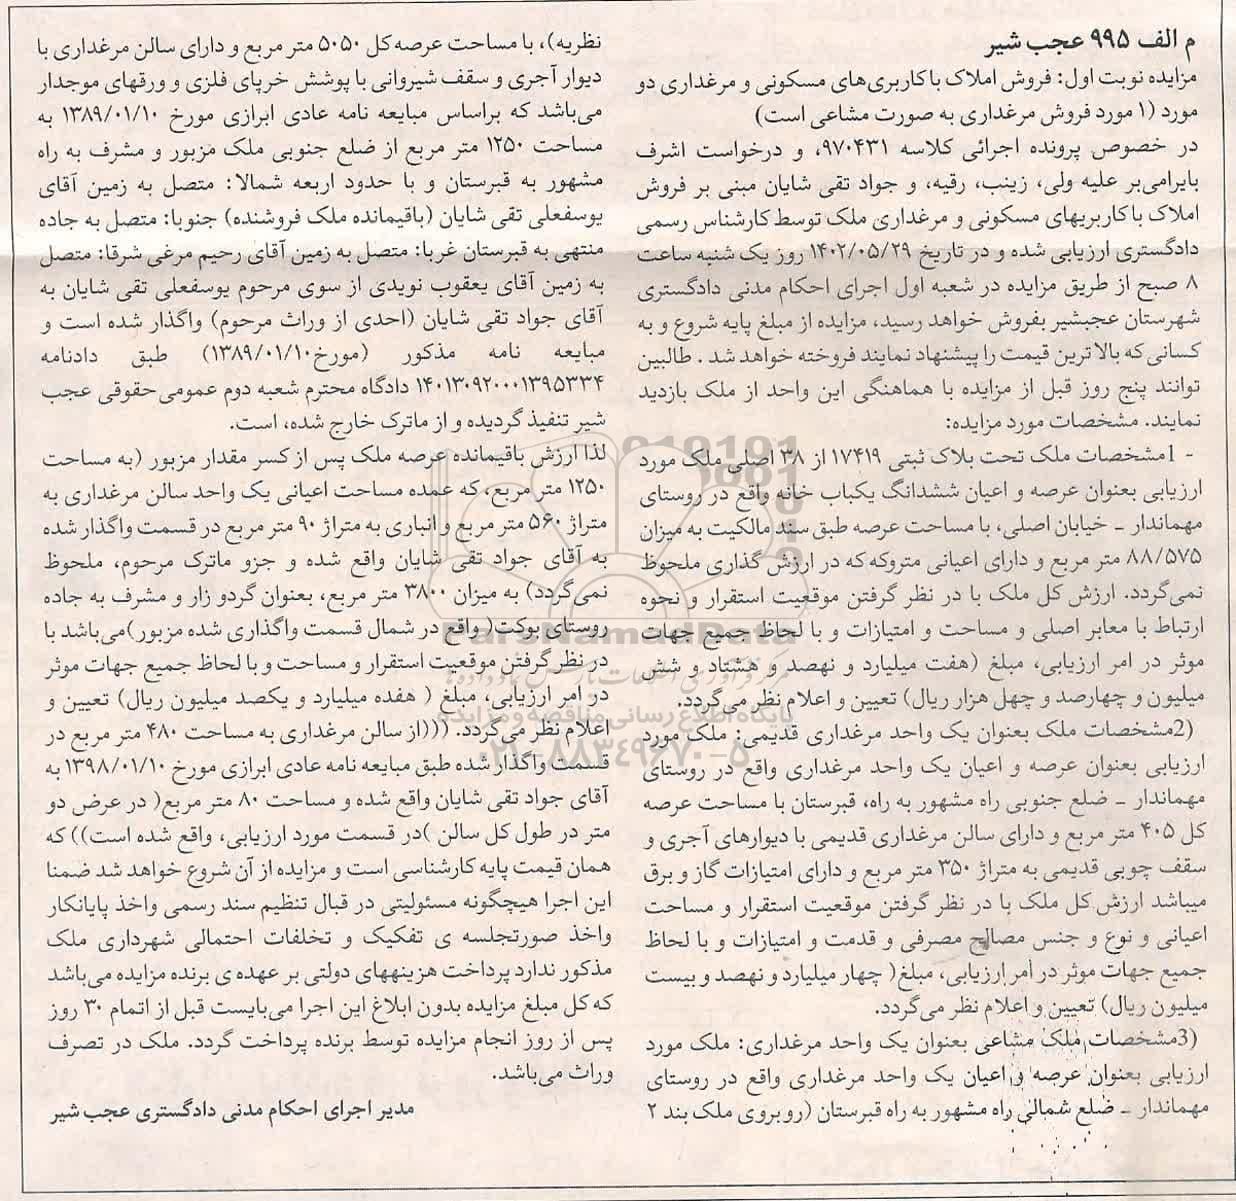 م الف ۹۹۵ عجب شیر
مزایده نوبت اول: فروش املاک با کاربری‌های مسکونی و مرغداری دو
مورد (۱ مورد فروش مرغداری به صورت مشاعی است)
در خصوص پرونده اجرائی کلاسه ۹۷۰۴۳۱، و درخواست اشرف
بایرامی‌بر علیه ولی، زینب، رقیه، و جواد تقی شایان مبنی بر فروش
املاک با کاربریهای مسکونی و مرغداری ملک توسط کارشناس رسمی
دادگستری ارزیابی شده و در تاریخ ۱۴۰۲/۰۵/۲۹ روز یک شنبه ساعت
۸ صبح از طریق مزایده در شعبه اول اجرای احکام مدنی دادگستری
شهرستان عجبشیر بفروش خواهد رسید، مزایده از مبلغ پایه شروع و به
کسانی که بالاترین قیمت را پیشنهاد نمایند فروخته خواهد شد . طالبین
توانند پنج روز قبل از مزایده با هماهنگی این واحد از ملک بازدید
نمایند. مشخصات مورد مزایده:
- 1مشخصات ملک تحت بلاک ثبتی ۱۷۴۱۹ از ۳۸ اصلی ملک مورد
ارزیابی بعنوان عرصه و اعیان ششدانگ یکباب خانه واقع در روستای
مهماندار ـ خیابان اصلی، با مساحت عرصه طبق سند مالکیت به میزان
۸۸/۵۷۵ متر مربع و دارای اعیانی متروکه که در ارزش گذاری ملحوظ
نمی‌گردد. ارزش کل ملک با در نظر گرفتن موقعیت استقرار و نحوه
ارتباط با معابر اصلی و مساحت و امتیازات و با لحاظ جمیع جهات
موثر در امر ارزیابی، مبلغ (هفت میلیارد و نهصد و هشتاد و شش
میلیون و چهارصد و چهل هزار ریال) تعیین و اعلام نظر می‌گردد.
(2مشخصات ملک بعنوان یک واحد مرغداری قدیمی: ملک مورد
ارزیابی بعنوان عرصه و اعیان یک واحد مرغداری واقع در روستای
مهماندار ـ ضلع جنوبی راه مشهور به راه، قبرستان با مساحت عرصه
کل ۴۰۵ متر مربع و دارای سالن مرغداری قدیمی با دیوارهای آجری و
سقف چوبی قدیمی به متراژ ۳۵۰ متر مربع و دارای امتیازات گاز و برق
میباشد ارزش کل ملک با در نظر گرفتن موقعیت استقرار و مساحت
اعیانی و نوع و جنس مصالح مصرفی و قدمت و امتیازات و با لحاظ
جمیع جهات موثر در امر ارزیابی، مبلغ( چهار میلیارد و نهصد و بیست
میلیون ریال) تعیین و اعلام نظر می‌گردد.
(3مشخصات ملک مشاعی بعنوان یک واحد مرغداری: ملک مورد
ارزیابی بعنوان عرصه و اعیان یک واحد مرغداری واقع در روستای
مهماندار ـ ضلع شمالی راه مشهور به راه قبرستان (روبروی ملک بند ۲
نظریه)، با مساحت عرصه کل ۵۰۵۰ متر مربع و دارای سالن مرغداری با
دیوار آجری و سقف شیروانی با پوشش خرپای فلزی و ورقهای موجدار
می‌باشد که براساس مبایعه نامه عادی ابرازی مورخ ۱۳۸۹/۰۱/۱۰ به
مساحت ۱۲۵۰ متر مربع از ضلع جنوبی ملک مزبور و مشرف به راه
مشهور به قبرستان و با حدود اربعه شمالا: متصل به زمین آقای
یوسفعلی تقی شایان (باقیمانده ملک فروشنده) جنوبا: متصل به جاده
منتهی به قبرستان غربا: متصل به زمین آقای رحیم مرغی شرقا: متصل
به زمین آقای یعقوب نویدی از سوی مرحوم یوسفعلی تقی شایان به
آقای جواد تقی شایان (احدی از وراث مرحوم) واگذار شده است و
مبایعه نامه مذکور (مورخ۱۳۸۹/۰۱/۱۰) طبق دادنامه
۱۴۰۱۳۰۹۲۰۰۰۱۳۹۵۳۳۴ دادگاه محترم شعبه دوم عمومی‌حقوقی عجب
شیر تنفیذ گردیده و از ماترک خارج شده، است.
لذا ارزش باقیمانده عرصه ملک پس از کسر مقدار مزبور (به مساحت
۱۲۵۰ متر مربع، که عمده مساحت اعیانی یک واحد سالن مرغداری به
متراژ ۵۶۰ متر مربع و انباری به متراژ ۹۰ متر مربع در قسمت واگذار شده
به آقای جواد تقی شایان واقع شده و جزو ماترک مرحوم، ملحوظ
نمی‌گردد) به میزان ۳۸۰۰ متر مربع، بعنوان گردو زار و مشرف به جاده
روستای بوکت( واقع در شمال قسمت واگذاری شده مزبور)می‌باشد با
در نظر گرفتن موقعیت استقرار و مساحت و با لحاظ جمیع جهات موثر
در امر ارزیابی، مبلغ ( هفده میلیارد و یکصد میلیون ریال) تعیین و
اعلام نظر می‌گردد. (((از سالن مرغداری به مساحت ۴۸۰ متر مربع در
قسمت واگذار شده طبق مبایعه نامه عادی ابرازی مورخ ۱۳۹۸/۰۱/۱۰ به
آقای جواد تقی شایان واقع شده و مساحت ۸۰ متر مربع( در عرض دو
متر در طول کل سالن )در قسمت مورد ارزیابی، واقع شده است)) که
همان قیمت پایه کارشناسی است و مزایده از آن شروع خواهد شد ضمنا
این اجرا هیچگونه مسئولیتی در قبال تنظیم سند رسمی واخذ پایانکار
واخذ صورتجلسه ی تفکیک و تخلفات احتمالی شهرداری ملک
مذکور ندارد پرداخت هزینههای دولتی بر عهده ی برنده مزایده می‌باشد
که کل مبلغ مزایده بدون ابلاغ این اجرا می‌بایست قبل از اتمام ۳۰ روز
پس از روز انجام مزایده توسط برنده پرداخت گردد. ملک در تصرف
وراث می‌باشد.
مدیر اجرای احکام مدنی دادگستری عجب شیر
ParsNamadData
پایگاه اطلاع رسانی مناقصه و مزایده
۰۲۱-۸۸۳۴۹۶۷۰-۵